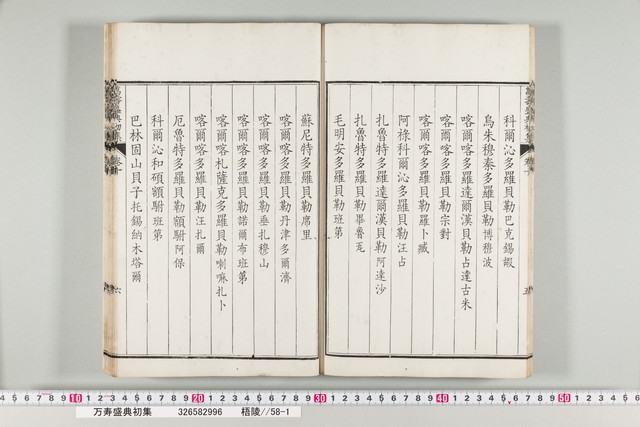 科爾沁多羅貝勒巴克錫嘏
烏朱穆秦多羅貝勒博穆波
喀爾喀多羅達爾漢貝勒占達古米
喀爾喀多羅貝勒宗對
喀爾喀多羅貝勒羅卜藏
阿祿科爾沁多羅貝勒汪占
扎魯特多羅達爾漢貝勒阿達沙
扎魯特多羅貝勒畢魯瓦
毛明安多羅貝勒班第
蘇尼特多羅貝勒席里
喀爾喀多羅貝勒丹津多爾濟
喀爾喀多羅貝勒垂扎穆山
喀爾喀多羅貝勒諾爾布班第
喀爾喀札薩克多羅貝勒喇嘛扎卜
喀爾喀多羅貝勒汪扎爾
厄魯特多羅貝勒額駙阿保
科爾沁和碩額駙班第
巴林固山貝子托錫納木塔爾
六
10 20 30 40 50
万寿盛典初集 326582996 梧陵//58-1